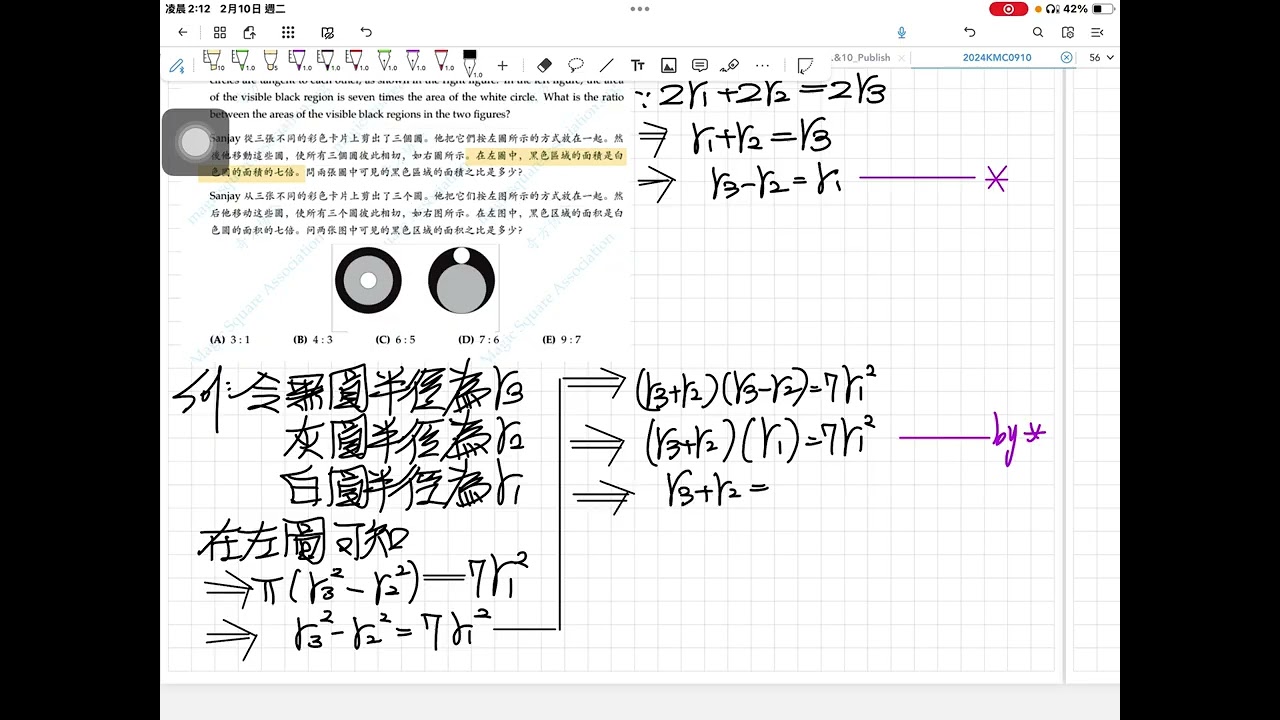 凌晨2:12 2月10日 週二
42%
&10_Publish
2024KMC0910
56
10 1.0 5 1.0 1.0 1.0 1.0 1.0 1.0 1.0
circles are tangent to each other, as shown in the right figure. In the left figure, the area
of the visible black region is seven times the area of the white circle. What is the ratio
between the areas of the visible black regions in the two figures?
Sanjay 從三張不同的彩色卡片上剪出了三個圓。他把它們按左圖所示的方式放在一起。然
後他移動這些圓，使所有三個圓彼此相切，如右圖所示。在左圖中，黑色區域的面積是白
色圓的面積的七倍。問兩張圖中可見的黑色區域的面積之比是多少?
Sanjay 从三张不同的彩色卡片上剪出了三个圆。他把它们按左图所示的方式放在一起。然
后他移动这些圆，使所有三个圆彼此相切，如右图所示。在左图中，黑色区域的面积是白
色圆的面积的七倍。问两张图中可见的黑色区域的面积之比是多少?
Magic Square Association
(A) 3 : 1 (B) 4 : 3 (C) 6 : 5 (D) 7 : 6 (E) 9 : 7
∵ 2r₁+2r₂=2r₃
⇒ r₁+r₂=r₃
⇒ r₃-r₂=r₁ *
Sol: 令黑圓半徑為r₃
灰圓半徑為r₂
白圓半徑為r₁
在左圖可知
⇒ π(r₃²-r₂²)=7r₁²
⇒ r₃²-r₂²=7r₁²
⇒ (r₃+r₂)(r₃-r₂)=7r₁²
⇒ (r₃+r₂)(r₁)=7r₁² by *
⇒ r₃+r₂=